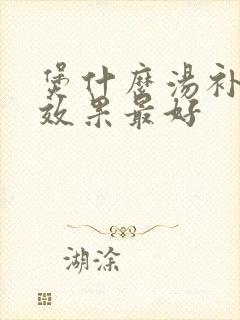 煲什麽湯补
效果最好
湖涂